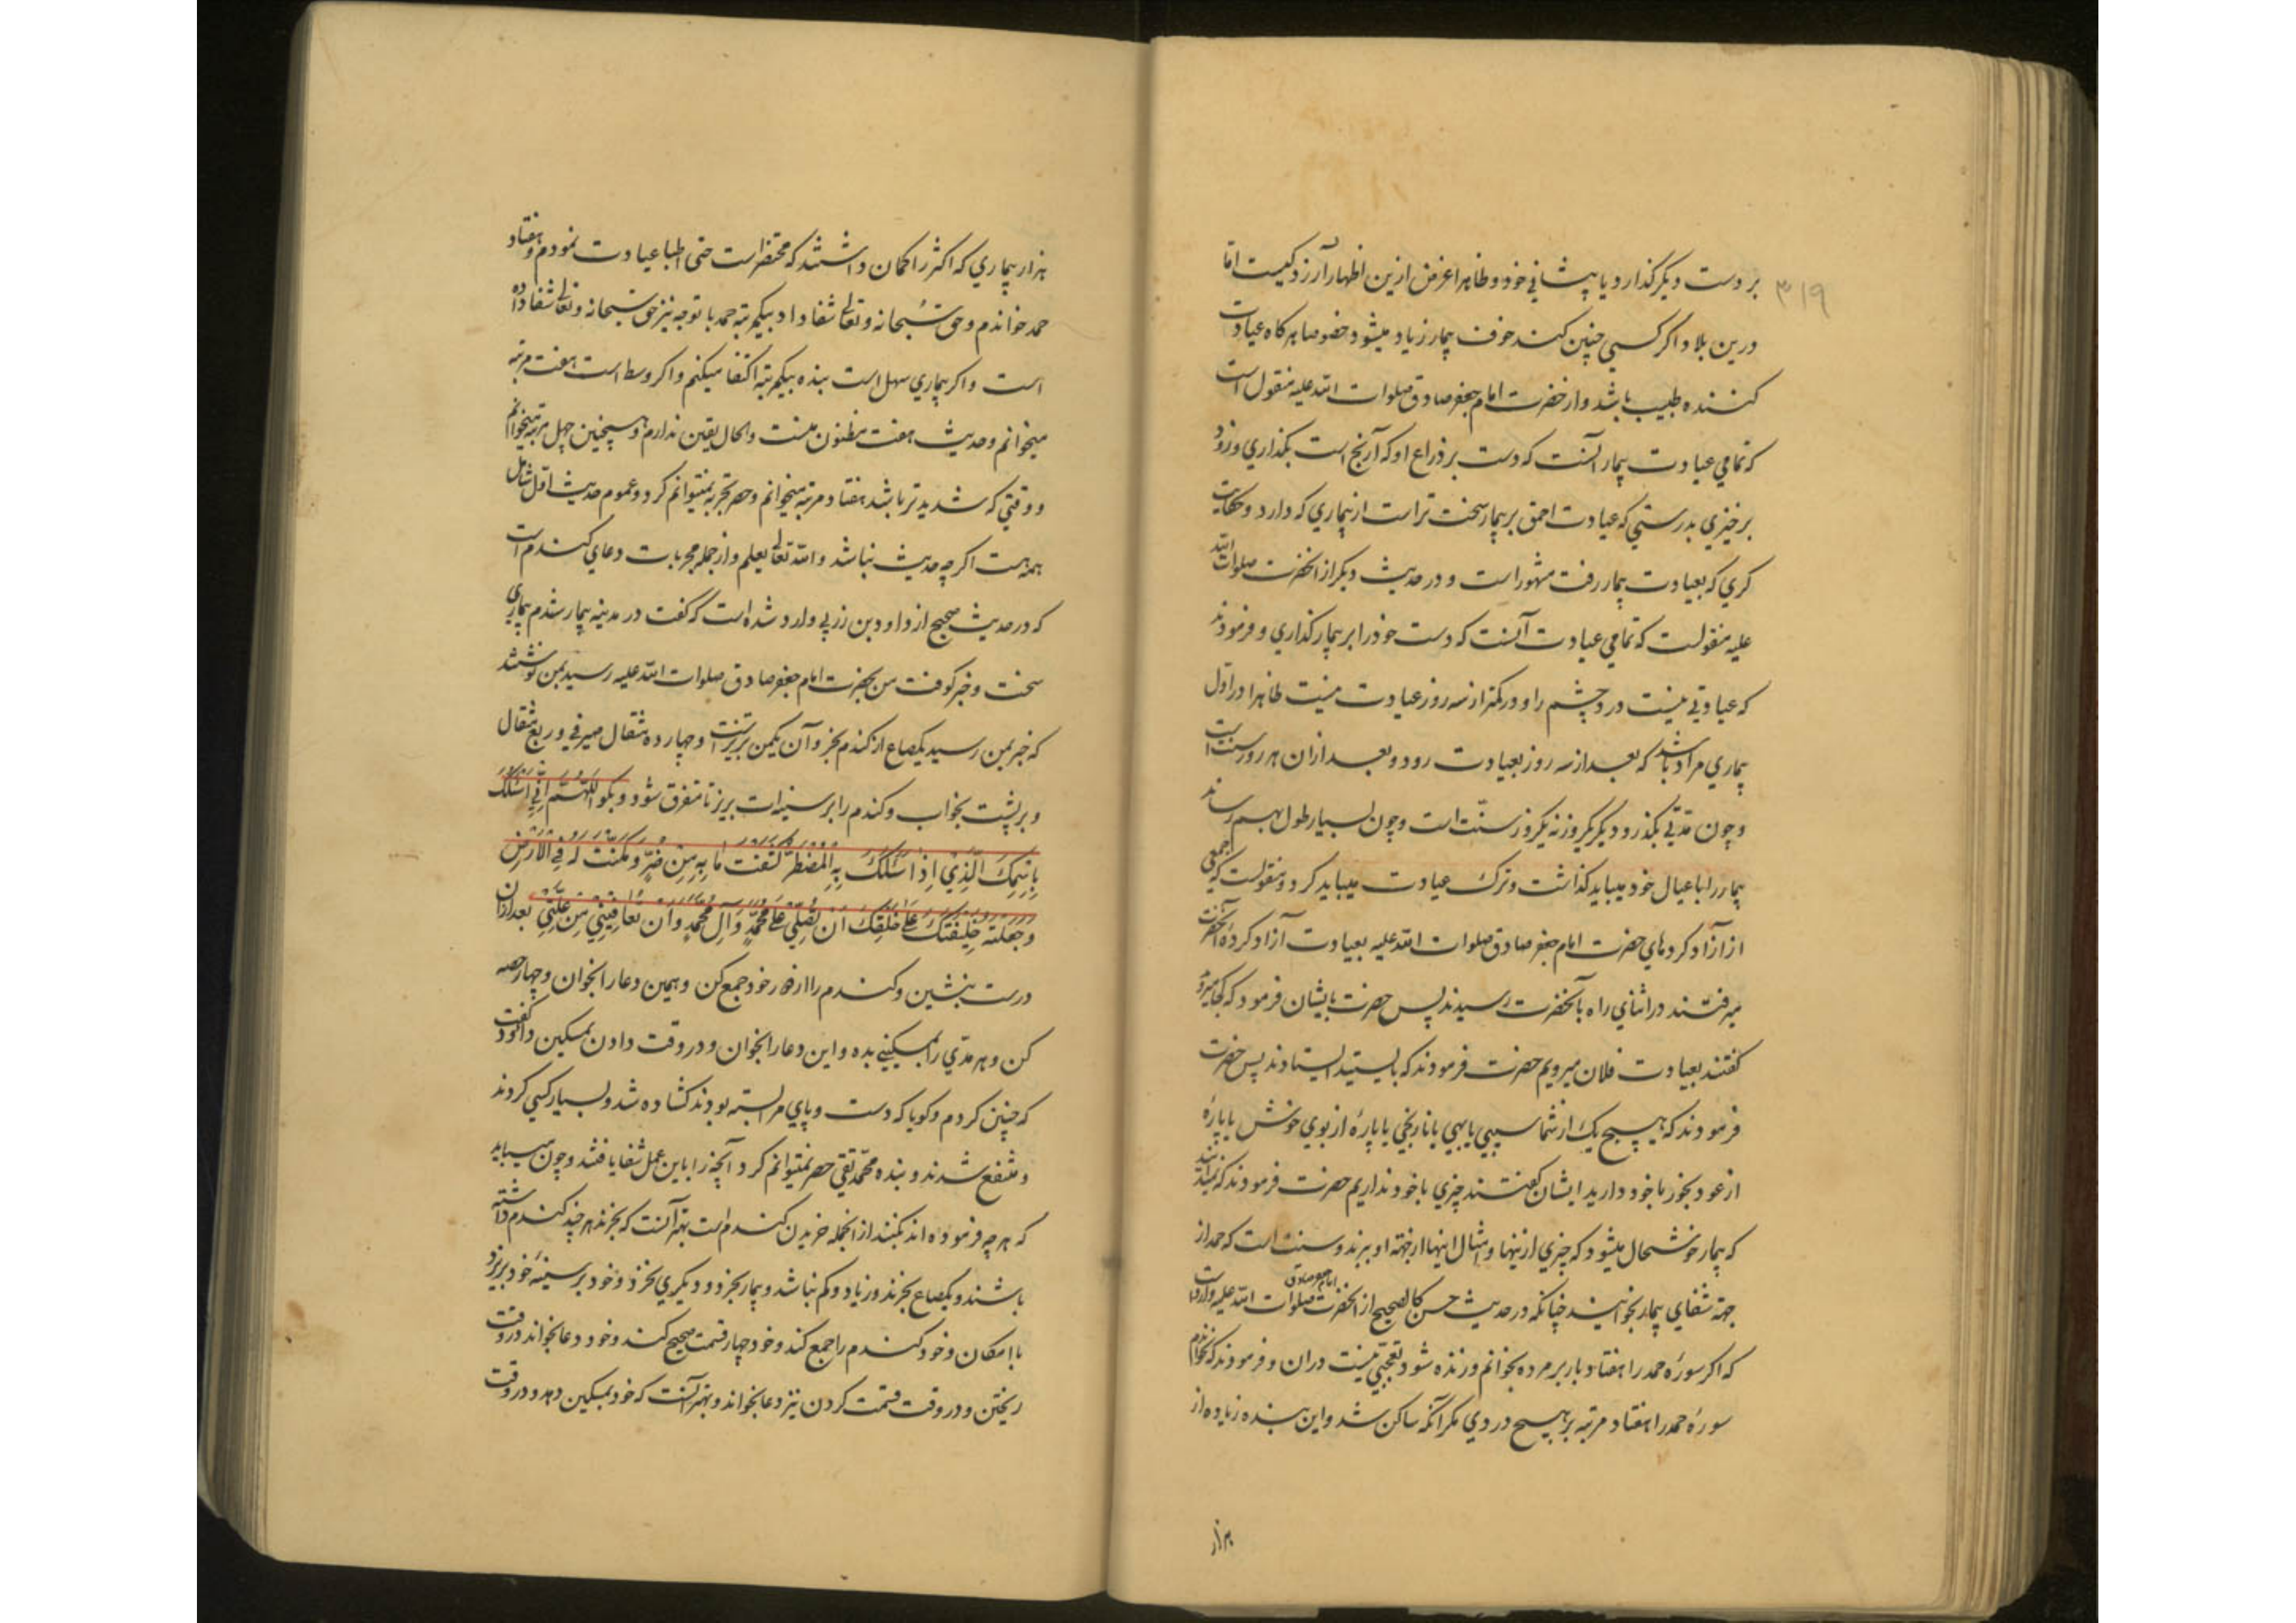 ۳۱۹
بر دست دیگر گذارد یا پیشانی خود و ظاهرا غرض ازین اظهار آزردگیست امّا
درین بلاد اگر کسی چنین کند خوف بیمار زیاد میشود خصوصا هرکاه عیادت
کننده طبیب باشد و از حضرت امام جعفر صادق صلوات الله علیه منقول است
که تمامی عیادت بیمار آنست که دست بر ذراع او که آرنج است بگذاری و زود
برخیزی بدرستی که عیادت احمق بر بیمار سخت تر است از بیماری که دارد و حکایت
کری که بعیادت بیمار رفت مشهور است و در حدیث دیگر از انحضرت صلوات الله
علیه منقولست که تمامی عیادت آنست که دست خود را بر بیمار گذاری و فرمودند
که عیادتی نیست در درد چشم را و در کمتر از سه روز عیادت نیست ظاهرا در اوّل
بیماری مراد باشد که بعد از سه روز بعیادت رود و بعد ازان هر روز سنت است
و چون مدّتی بگذرد دیگر یکروز نه یکروز سنّت است و چون بسیار طول بهم رساند
بیمار را با عیال خود میباید گذاشت و ترک عیادت میباید کرد و منقولست که جمعی
از آزاد کردهای حضرت امام جعفر صادق صلوات الله علیه بعیادت آزاد کردهٔ آنحضرت
میرفتند در اثنای راه بآنحضرت رسیدند پس حضرت بایشان فرمود که کجا میروید
گفتند بعیادت فلان میرویم حضرت فرمودند که بایستید ایستادند پس حضرت
فرمودند که هیچ یک از شما سیبی یا بهی یا نارنجی یا پارهٔ از بوی خوش یا پارهٔ
از عود بخور با خود دارید ایشان گفتند چیزی با خود نداریم حضرت فرمودند که نمیدانید
که بیمار خوشحال میشود که چیزی ازینها و امثال اینها از جهته او ببرند و سنت است که حمد از
جهة شفای بیمار بخوانید چنانکه در حدیث حسن کالصحیح از انحضرت امام جعفر صادق صلوات الله علیه وارد است
که اگر سورهٔ حمد را هفتاد بار بر مرده بخوانم و زنده شود تعجّبی نیست دران و فرمودند که نخواندم
سورهٔ حمد را هفتاد مرتبه بر هیچ دردی مگر آنکه ساکن شد و این بنده زیاده از
هزار
هزار بیماری که اکثر را گمان داشتند که محتضر است حتی اطبا عیادت نمودم و هفتاد
حمد خواندم و حق سُبحانه و تعالی شفا داد بیکمرتبه حمد با توجه نیز حق سبحانه و تعالی شفا داده
است و اگر بیماری سهل است بنده بیکمرتبه اکتفا میکنم و اگر وسط است هفت مرتبه
میخوانم و حدیث هفت مظنون هست و الحال یقین ندارم و همچنین چهل مرتبه میخوانم
و وقتی که شدیدتر باشد هفتاد مرتبه میخوانم و حصر تجربه نمیتوانم کرد و عموم حدیث اوّل شامل
همه هست اگرچه حدیث نباشد و الله تعالی یعلم و از جمله مجربات دعای گندم است
که در حدیث صحیح از داود بن زربی وارد شده است که گفت در مدینه بیمار شدم بیماری
سخت و خبر کوفت من بحضرت امام جعفر صادق صلوات الله علیه رسید بمن نوشتند
که خبر بمن رسید یکصاع از گندم بخر و آن یکمن تبریزست و چهارده مثقال صیرفی و ربع مثقال
و بر پشت بخواب و گندم را بر سینه‌ات بریز تا متفرق شود و بگو اَللّٰهُمَّ اِنِّی اَسْئَلُکَ
بِاسْمِکَ الَّذِیْ اِذَا سَئَلَکَ بِهِ الْمُضْطَرُّ کَشَفْتَ مَا بِهِ مِنْ ضُرٍّ وَ مَکَّنْتَ لَهُ فِی الْاَرْضِ
وَ جَعَلْتَهُ خَلِیْفَتَکَ عَلٰی خَلْقِکَ اَنْ تُصَلِّیَ عَلٰی مُحَمَّدٍ وَ آلِ مُحَمَّدٍ وَ اَنْ تُعَافِیَنِیْ مِنْ عِلَّتِیْ بعد ازان
درست بنشین و گندم را از دور خود جمع کن و همین دعا را بخوان و چهار حصه
کن و هر مدّی را بمسکینی بده و این دعا را بخوان و در وقت دادن بمسکین داود گفت
که چنین کردم و گویا که دست و پای مرا بسته بودند گشاده شد و بسیار کسی کردند
و منتفع شدند و بنده محمّد تقی حصر نمیتوانم کرد آنچه را باین عمل شفا یافتند و چون میباید
که هرچه فرموده اند بکنند از انجمله خریدن گندم است بهتر آنست که بخرند هر چند گندم داشته
باشند و یکصاع بخرند و زیاد و کم نباشد و بیمار بخرد و دیگری نخرد و خود بر سینهٔ خود بریزد
با امکان و خود گندم را جمع کند و خود چهار قسمت صحیح کند و خود دعا بخواند در وقت
ریختن و در وقت قسمت کردن نیز دعا بخواند و بهتر آنست که خود بمسکین دهد و در وقت